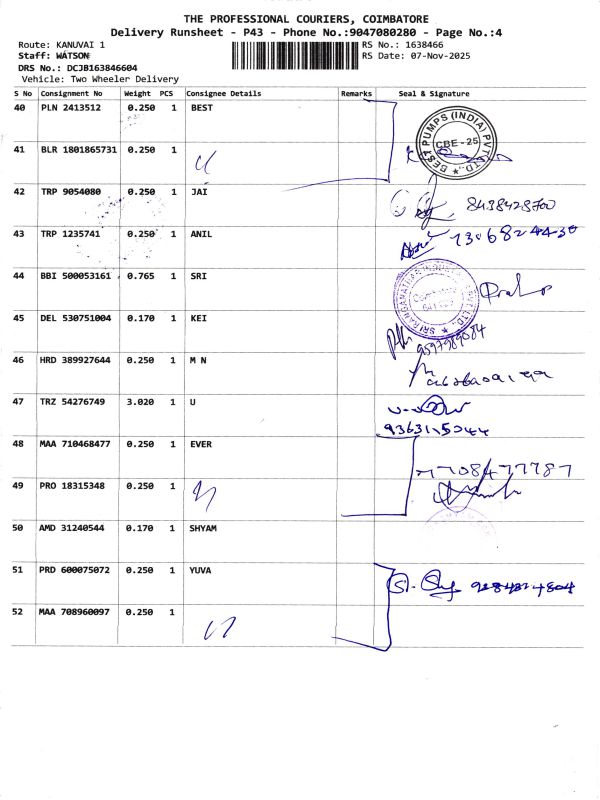 THE PROFESSIONAL COURIERS, COIMBATORE
Delivery Runsheet - P43 - Phone No.:9047080280 - Page No.:4
Route: KANUVAI 1 RS No.: 1638466
Staff: WATSON RS Date: 07-Nov-2025
DRS No.: DCJB163846604
Vehicle: Two Wheeler Delivery
S No Consignment No Weight PCS Consignee Details Remarks Seal & Signature
40 PLN 2413512 0.250 1 BEST
BEST PUMPS (INDIA) PVT. LTD.,
CBE - 25
41 BLR 1801865731 0.250 1
42 TRP 9054080 0.250 1 JAI
8438428700
43 TRP 1235741 0.250 1 ANIL
44 BBI 500053161 0.765 1 SRI
45 DEL 530751004 0.170 1 KEI
9597989084
46 HRD 389927644 0.250 1 M N
47 TRZ 54276749 3.020 1 U
9363115044
48 MAA 710468477 0.250 1 EVER
7708477787
49 PRO 18315348 0.250 1
50 AMD 31240544 0.170 1 SHYAM
51 PRD 600075072 0.250 1 YUVA
52 MAA 708960097 0.250 1